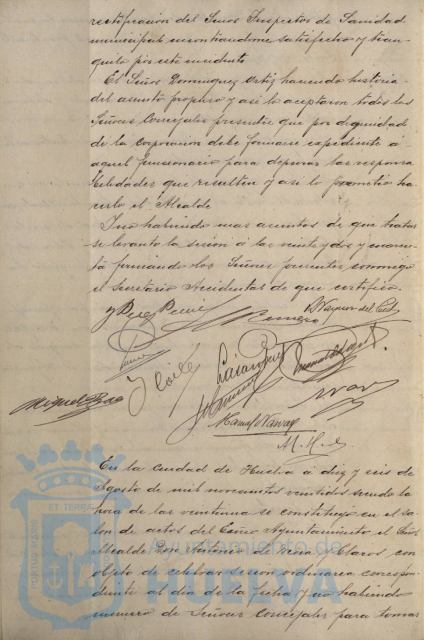 rectificacion del Señor Inspector de Sanidad
municipal encontrandome satisfecho y tran-
quilo por este incidente
El Señor Dominguez Ortiz haciendo historia
del asunto propuso y asi lo aceptaron todos los
Señores Concejales presentes que por dignidad
de la corporacion debe formarse expediente a
aquel funcionario para depurar las responsa
bilidades que resulten y asi lo prometio ha
cerlo el Alcalde
Y no habiendo mas asuntos de que tratar
se levantó la sesion á las veinte y dos y cuaren
ta firmando los Señores presentes conmigo
el Secretario Accidental de que certifico.
Miguel
Manuel Navarro
En la ciudad de Huelva á diez y seis de
Agosto de mil novecientos veintidos siendo la
hora de las veintiuna se constituyó en el sa
lon de actos del Excmo Ayuntamiento el Señor
Alcalde Don Antonio de Mora y Claros con
objeto de celebrar sesion ordinaria correspon
diente al dia de la fecha y no habiendo
numero de Señores Concejales para tomar
Ayuntamiento de
HUELVA
ET TERRÆ
PORTUS MARIS